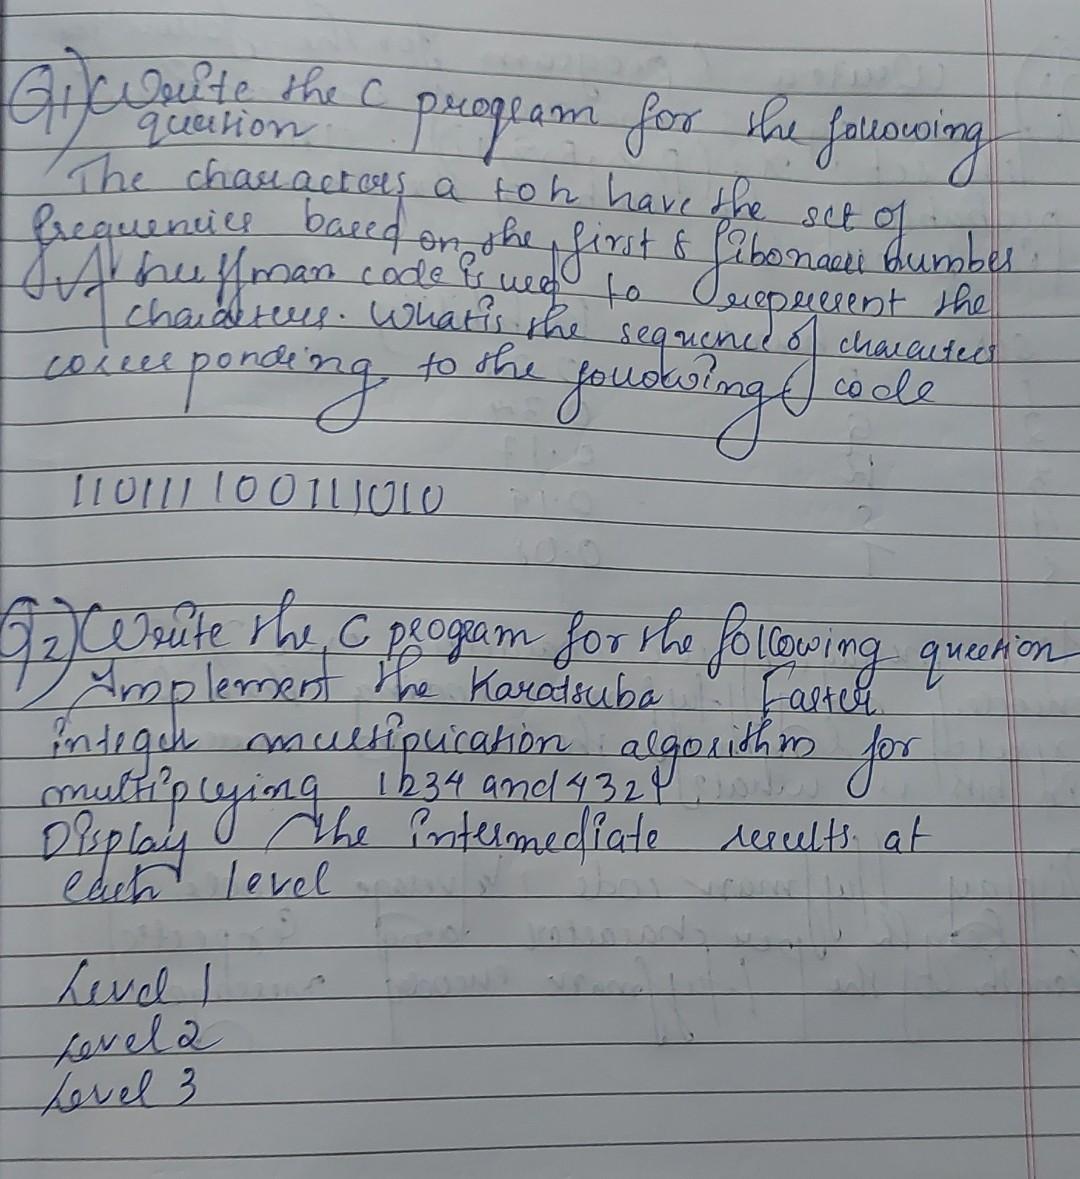 Q1) Write the C program for the following
question
The characters a to h have the set of
frequencies based on the first 8 fibonacci number
A huffman code is used to represent the
characters. What is the sequence of characters
corresponding to the following code
110111100111010
Q2) Write the C program for the following question
Implement the Karatsuba Faster
integer multiplication algorithm for
multiplying 1234 and 4321
Display the intermediate results at
each level
Level 1
Level 2
Level 3